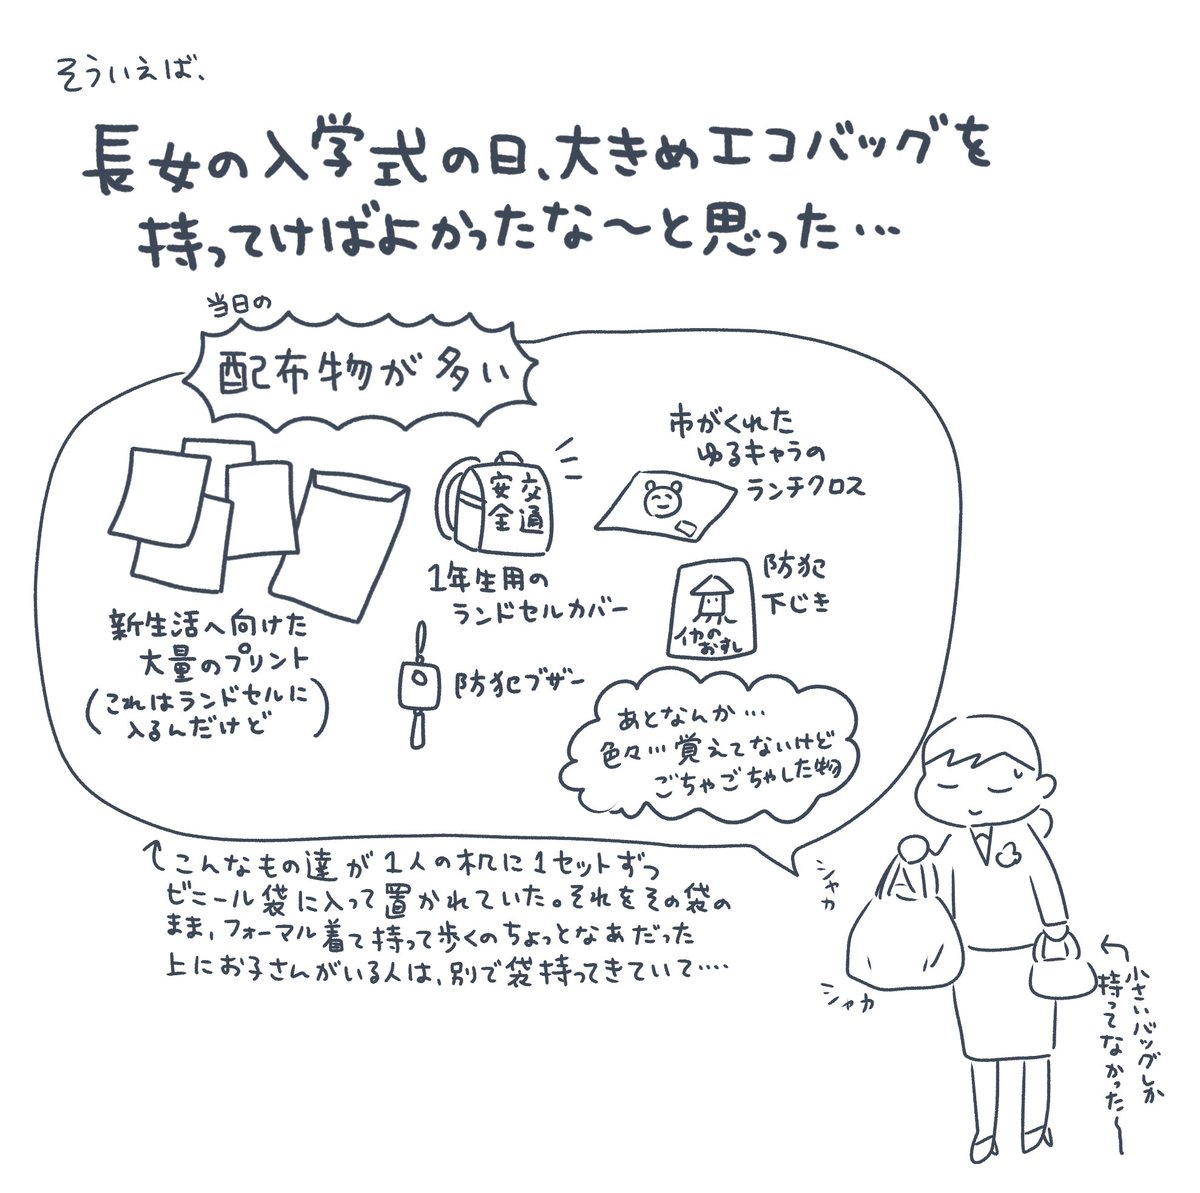 そういえば、
長女の入学式の日、大きめエコバッグを
持ってけばよかったな〜と思った…
当日の
配布物が多い
新生活へ向けた
大量のプリント
(これはランドセルに
入るんだけど)
交通
安全
1年生用の
ランドセルカバー
市がくれた
ゆるキャラの
ランチクロス
防犯ブザー
イカの
おすし
防犯
下じき
あとなんか…
色々…覚えてないけど
ごちゃごちゃした物
こんなもの達が1人の机に1セットずつ
ビニール袋に入って置かれていた。それをその袋の
まま、フォーマル着て持って歩くのちょっとなあだった
上にお子さんがいる人は、別で袋持ってきていて‥‥
シャカ
シャカ
小さいバッグしか
持ってなかった〜